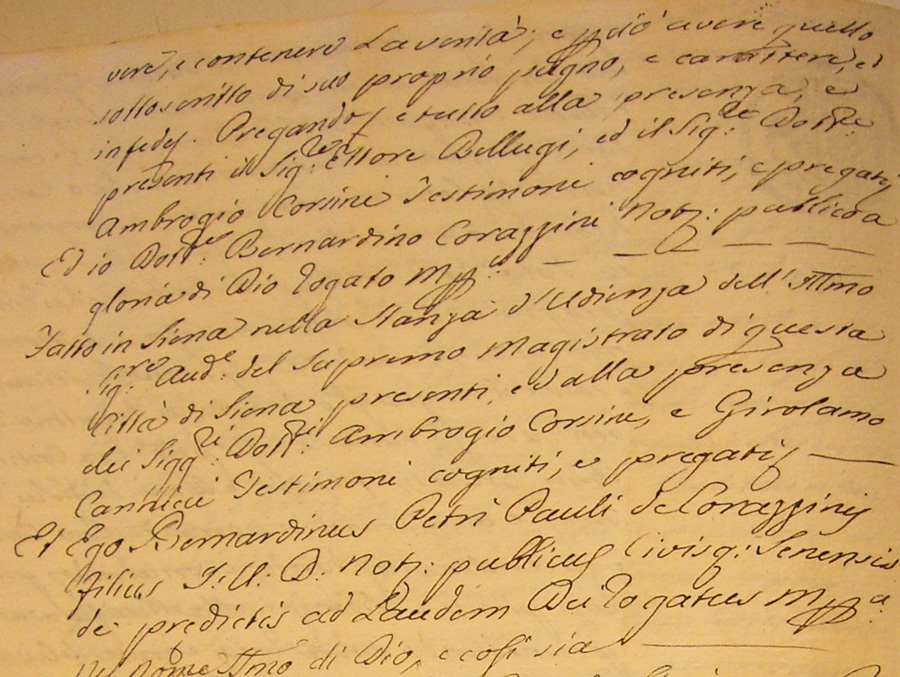 vere, e contenere La verità; e p̲ciò avere quello
sottoscritto di suo proprio pugno, e carattere, ed
in fedej. Pregandoj e tutto alla presenza, e
presenti il Sig:re Ettore Bellugi, ed il Sig:re Dott:re
Ambrogio Corsini Testimoni cogniti, e pregatj
Ed io Dott:re Bernardino Corazzini Notj: publico a
gloria di Dio rogato
Fatto in Siena nella Stanza d'Udienza dell' Illmo
Sig:re Aud:e del Supremo Magistrato di questa
Città di Siena presenti, ed alla presenza
dei Sigg:ri Dott:ri Ambrogio Corsini, e Girolamo
Testimoni cogniti, e pregatij
Et Ego Bernardinus Petri Pauli de Corazzinij
filius J: U: D: Notj: publicus Civisq: Senensis
de predictis ad Laudem Dei rogatus
Nel Nome SSmo di Dio, e così sia